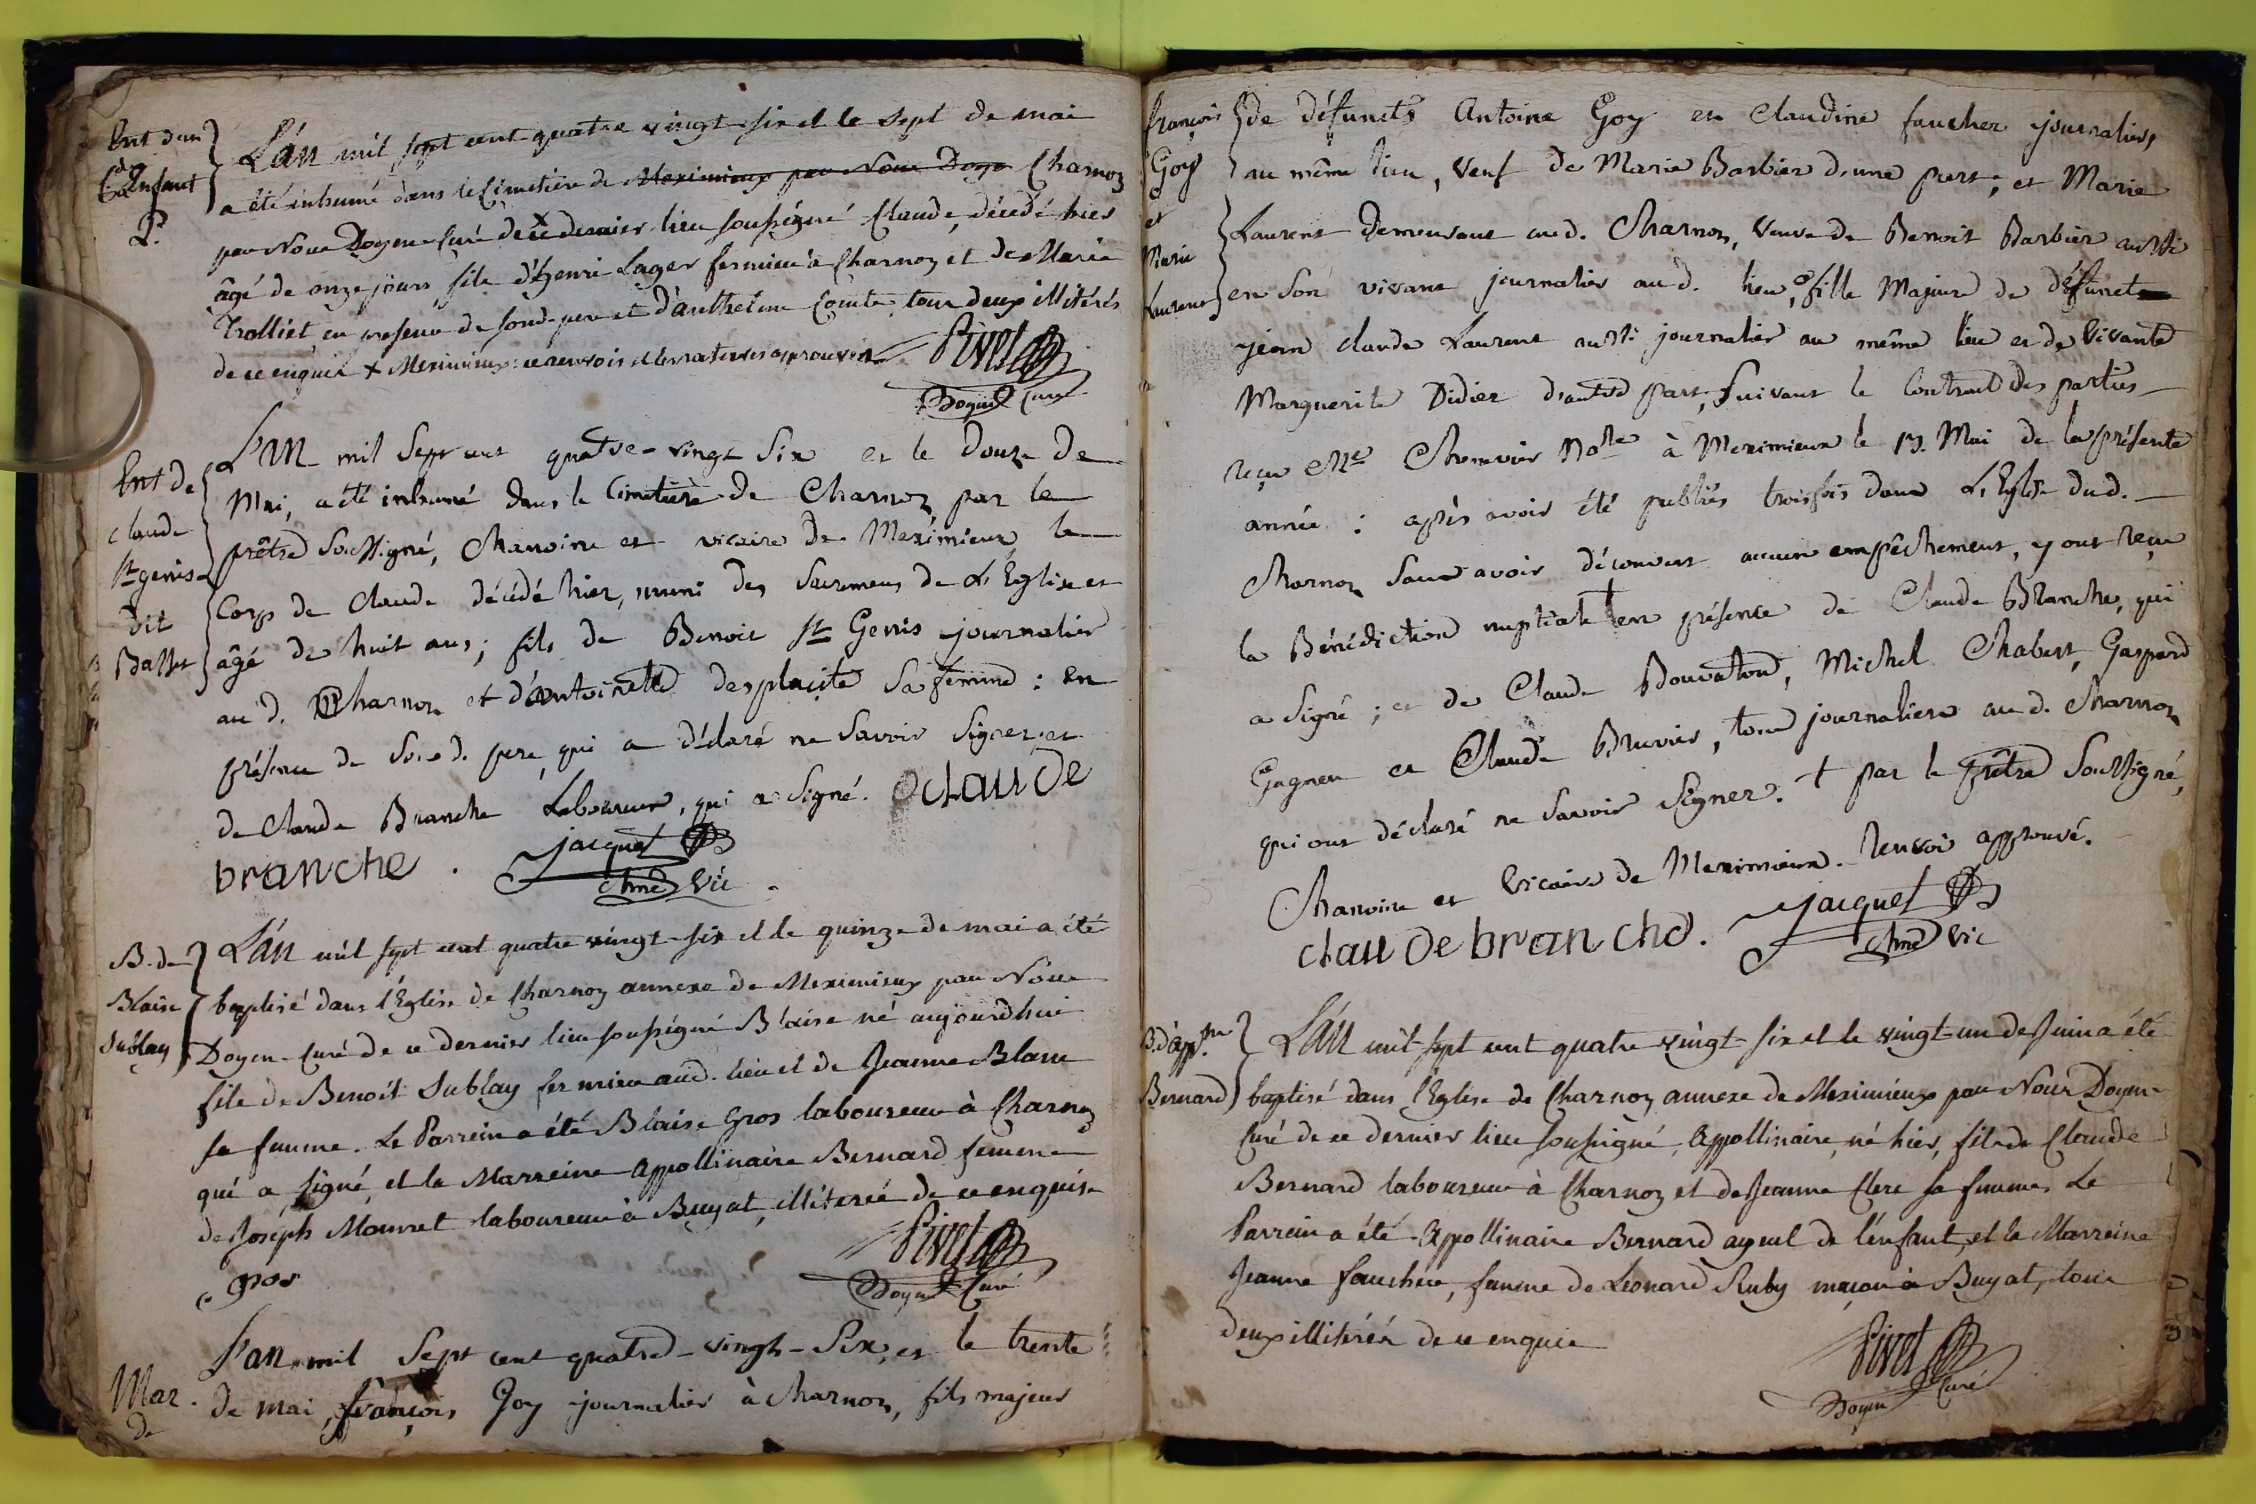 Ent d'un
Enfant
L'an mil sept cent quatre vingt-six et le sept de mai
a été inhumé dans le Cimetière de Meximieux par Nous Doye Charnoz
par Nous Doyen-Curé de ce dernier lieu soussigné Claude, décédé hier
âgé de onze jours, fils d'henri Lager fermier à Charnoz et de Marie
Trolliet, en presence de sond. pere et d'anthelme Comte, tous deux illitérés
de ce enquis + Meximieux ce renvois et les ratures approuvés
Pivet
Doyen Curé
Ent de
claude
St genis
dit
Basset
L'an mil Sept cent quatre-vingt Six et le Douze de
Mai, a été inhumé dans le Cimetière de Charnoz par le
prêtre soussigné, Chanoine et vicaire de Meximieux, le
Corps de Claude décédé hier, muni des Sacremens de L'Eglise et
âgé de huit ans; fils de Benoit St Genis journalier
au d. Charnoz et d'antoinette desplaite sa femme: en
présence de son d. pere, qui a déclaré ne savoir signer, et
de Claude Branche Laboureur, qui a signé. claude
branche.
jacquet
chne vic
B. de
Blaise
Sublay
L'an mil sept cent quatre vingt-six et le quinze de mai a été
baptisé dans l'Eglise de Charnoz annexe de Meximieux par Nous
Doyen-Curé de ce dernier lieu soussigné Blaise né aujourdhui
fils de Benoît Sublay fermier aud. lieu et de Jeanne Blanc
sa femme. Le Parrein a été Blaise Gros laboureur à Charnoz
qui a signé, et la Marreine Appollinaire Bernard femme
de Joseph Mouret laboureur à Buyat, illiterée de ce enquise
gros
Pivet
Doyen Curé
Mar.
de
L'an mil Sept cent quatre-vingt-Six, et le trente
de mai, françois Goy journalier à Charnoz, fils majeur
françois
Goy
et
Marie
Laurent
de défunts Antoine Goy et Claudine faucher journaliers
au même lieu, veuf de Marie Barbier d'une part; et Marie
Laurent demeurant au d. Charnoz, veuve de Benoit Barbier aussi
en son vivant journalier au d. lieu, fille Majeure de défunct
jean claude Laurent aussi journalier au même lieu et de vivante
Marguerite Didier d'autre part, suivant le Contract des parties
reçu Me Chenevier Nore à Meximieux le 13. Mai de la présente
année: après avoir été publiés trois fois dans L'Eglise dud.
Charnoz sans avoir découvert aucun empêchement, y ont reçu
la Bénédiction nuptiale + en présence de Claude Branche, qui
a signé; et de Claude Bouvaton, Michel Chabert, Gaspard
Gagneu et Claude Bruvier, tous journaliers au d. Charnoz
qui ont déclaré ne savoir signer. + par le prêtre soussigné,
Chanoine et vicaire de Meximieux. Renvoi approuvé.
claude branche.
jacquet
chne vic
B. d'app.re
Bernard
L'an mil sept cent quatre vingt-six et le vingt-un de Juin a été
baptisé dans l'Eglise de Charnoz annexe de Meximieux par Nous Doyen-
Curé de ce dernier lieu soussigné, Appollinaire, né hier, fils de Claude
Bernard laboureur à Charnoz et de Jeanne Clerc sa femme. Le
Parrein a été Appollinaire Bernard ayeul de l'enfant, et la Marreine
Jeanne fauchere, femme de Leonard Ruby maçon à Buyat, tous
deux illitérés de ce enquis
Pivet
Doyen Curé